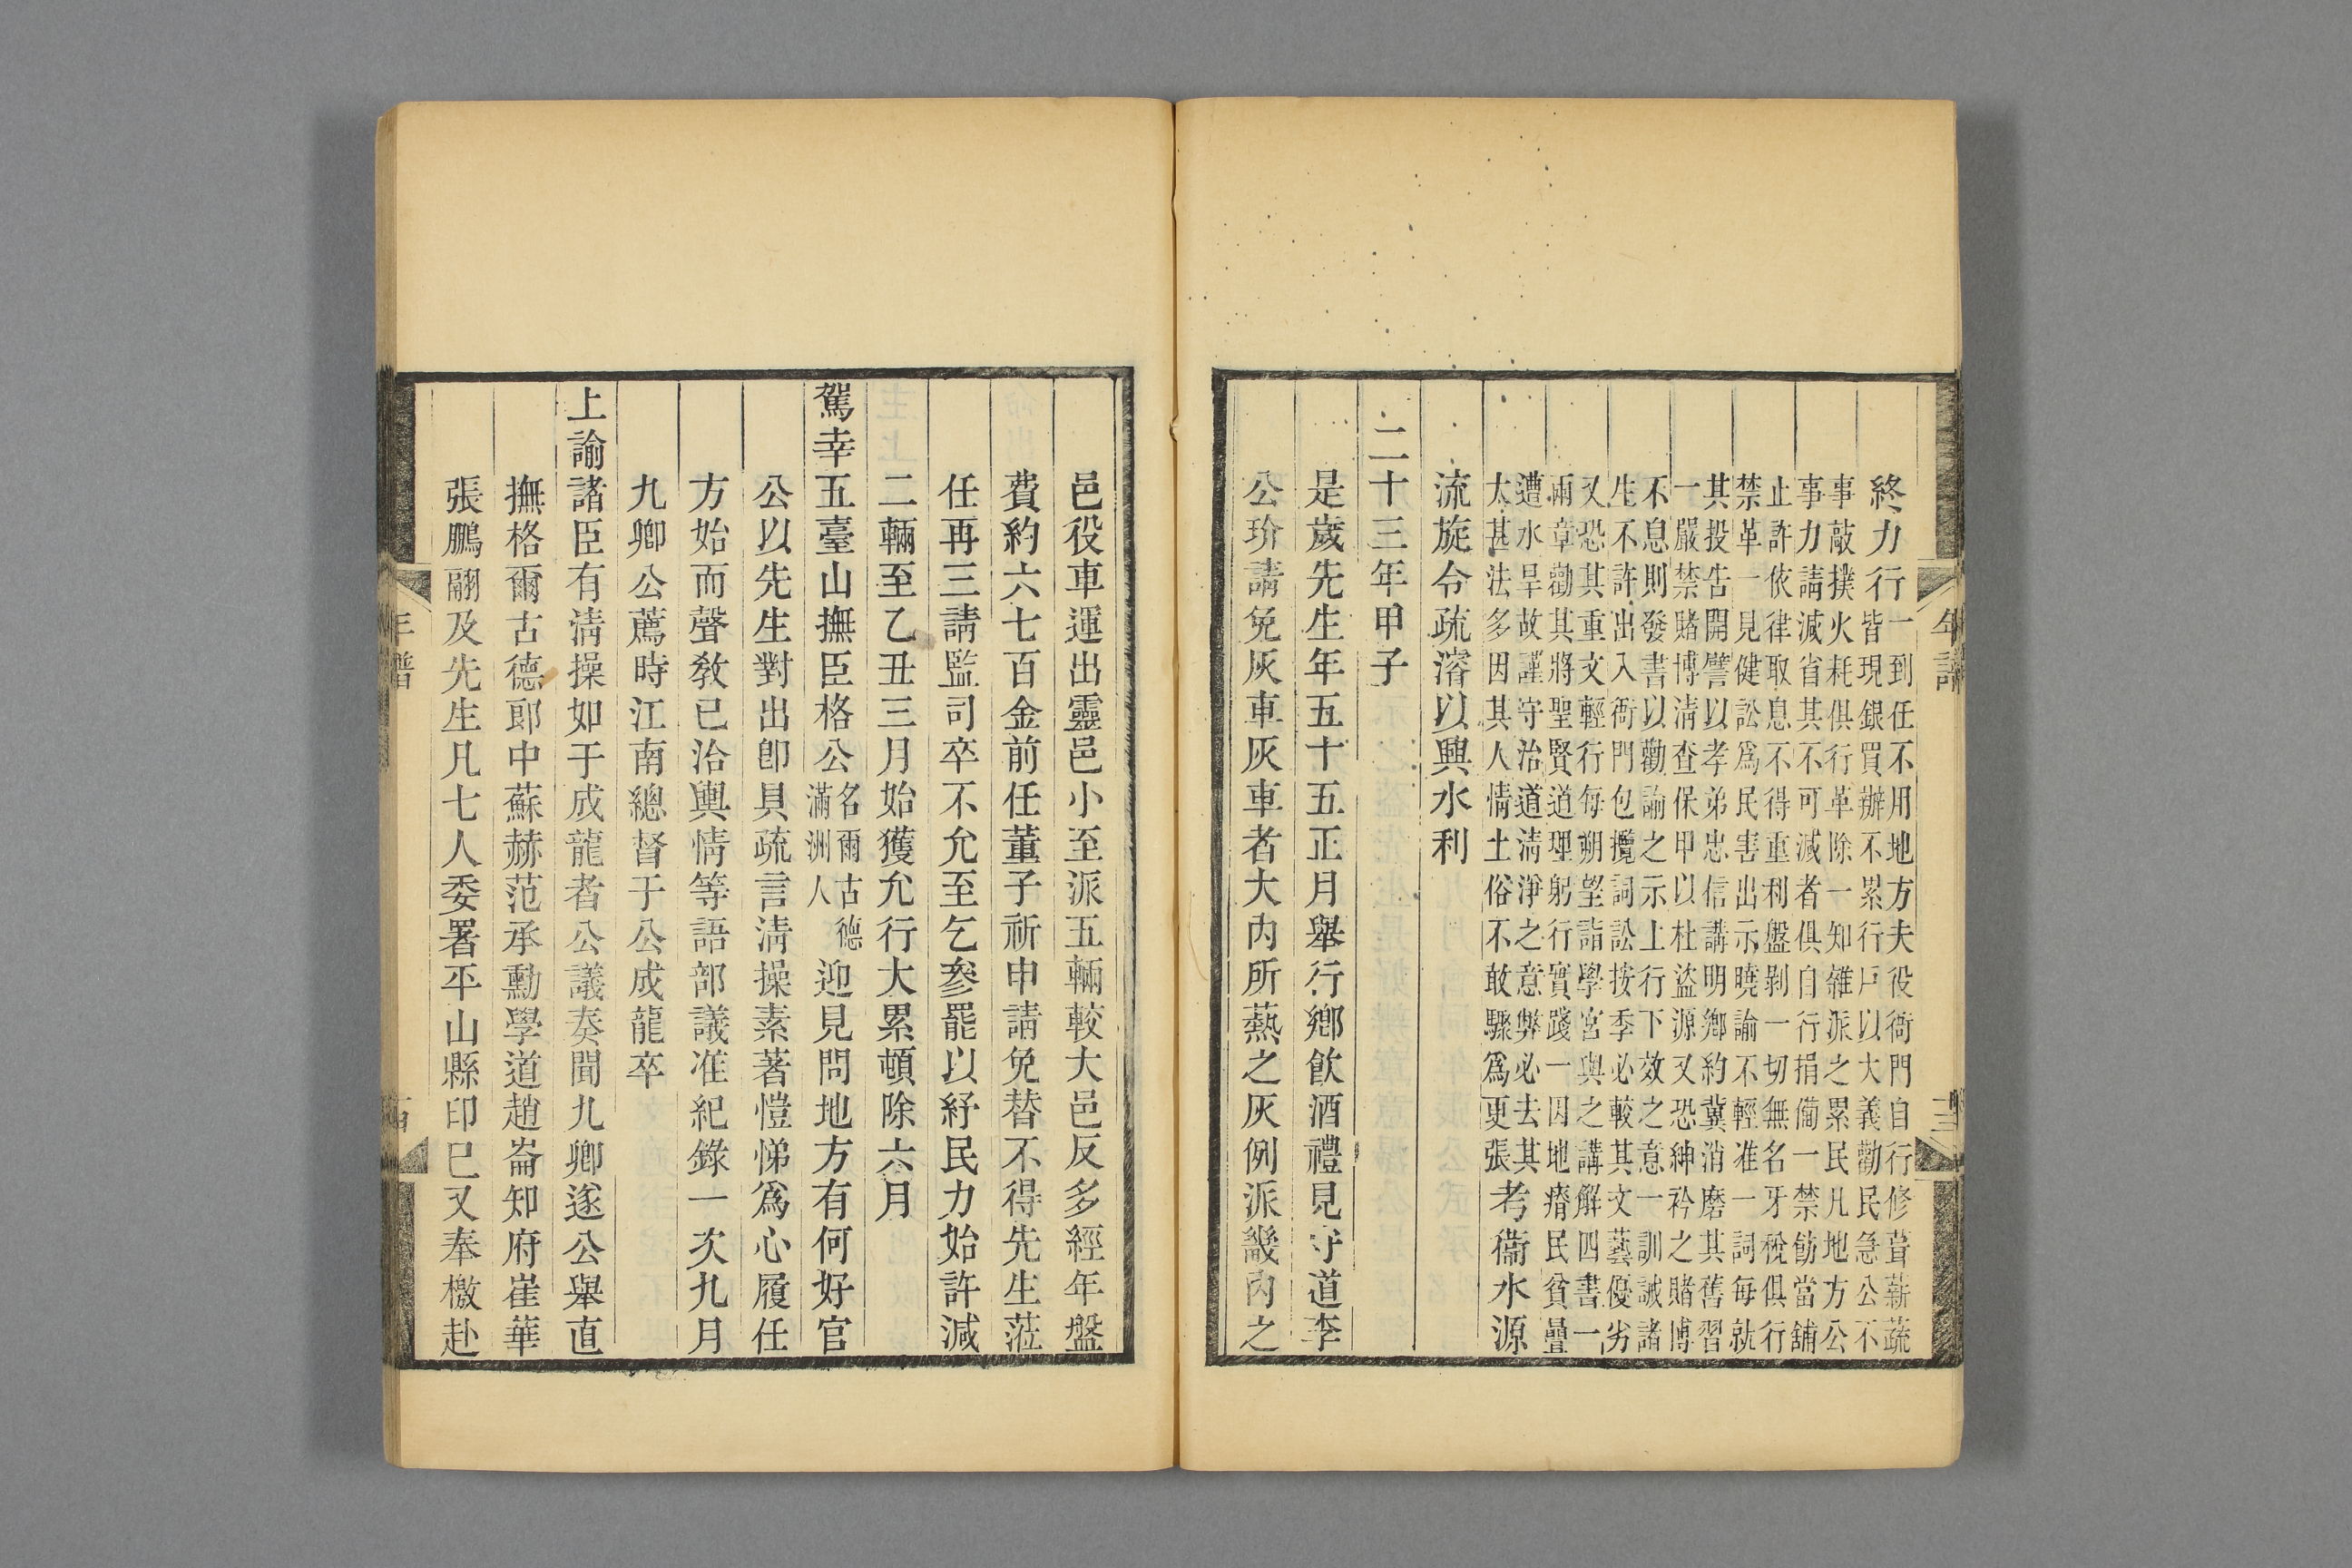 終力行一到任不用地方夫役衙門自行修葺薪蔬
皆現銀買辦不累行戶以大義勸民急公不
事敲撲火耗俱行革除一知雜派之累民凡地方公
事力請減省其不可減者俱自行捐備一禁飭當舖
止許依律取息不得重利盤剝一切無名牙稅俱行
禁革一見健訟為民害出示曉諭不輕准一詞每就
其投告開譬以孝弟忠信講明鄉約冀消磨其舊習
一嚴禁賭博清查保甲以杜盜源又恐紳衿之賭博
不息則發書以勸諭之示上行下效之意一訓誡諸
生不許出入衙門包攬詞訟按季必較其文藝優劣
又恐其重文輕行每朔望詣學宮與之講解四書一
兩章勸其將聖賢道理躬行實踐一因地瘠民貧疊
遭水旱故謹守治道清淨之意弊必去其
太甚法多因其人情土俗不敢驟為更張考衞水源
流旋令疏濬以興水利
二十三年甲子
是歲先生年五十五正月舉行鄉飲酒禮見守道李
公玠請免灰車灰車者大內所爇之灰例派畿內之
年譜
邑役車運出靈邑小至派五輛較大邑反多經年盤
費約六七百金前任董子祈申請免替不得先生蒞
任再三請監司卒不允至乞參罷以紓民力始許減
二輛至乙丑三月始獲允行大累頓除六月
駕幸五臺山撫臣格公名爾古德滿洲人迎見問地方有何好官
公以先生對出卽具疏言清操素著愷悌為心履任
方始而聲教已洽輿情等語部議准紀錄一次九月
九卿公薦時江南總督于公成龍卒
上諭諸臣有清操如于成龍者公議奏聞九卿遂公舉直
撫格爾古德郎中蘇赫范承勳學道趙崙知府崔華
張鵬翮及先生凡七人委署平山縣印已又奉檄赴
年譜